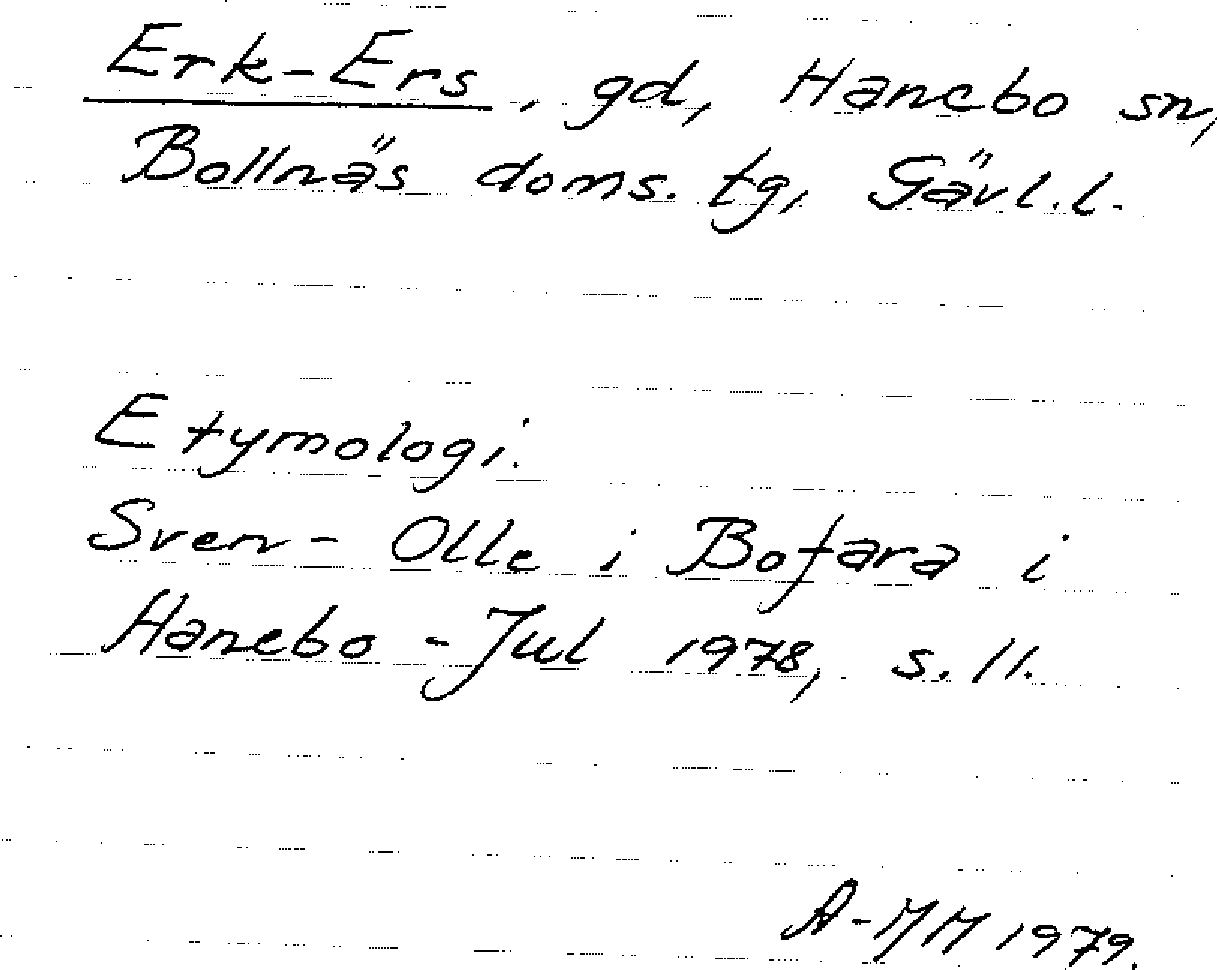 Erk-Ers, gd, Hanebo sn,
Bollnäs doms. tg, Gävl. l.
Etymologi.
Sven-Olle i Bofara i
Hanebo-Jul 1978, s. 11.
A-MM 1979.